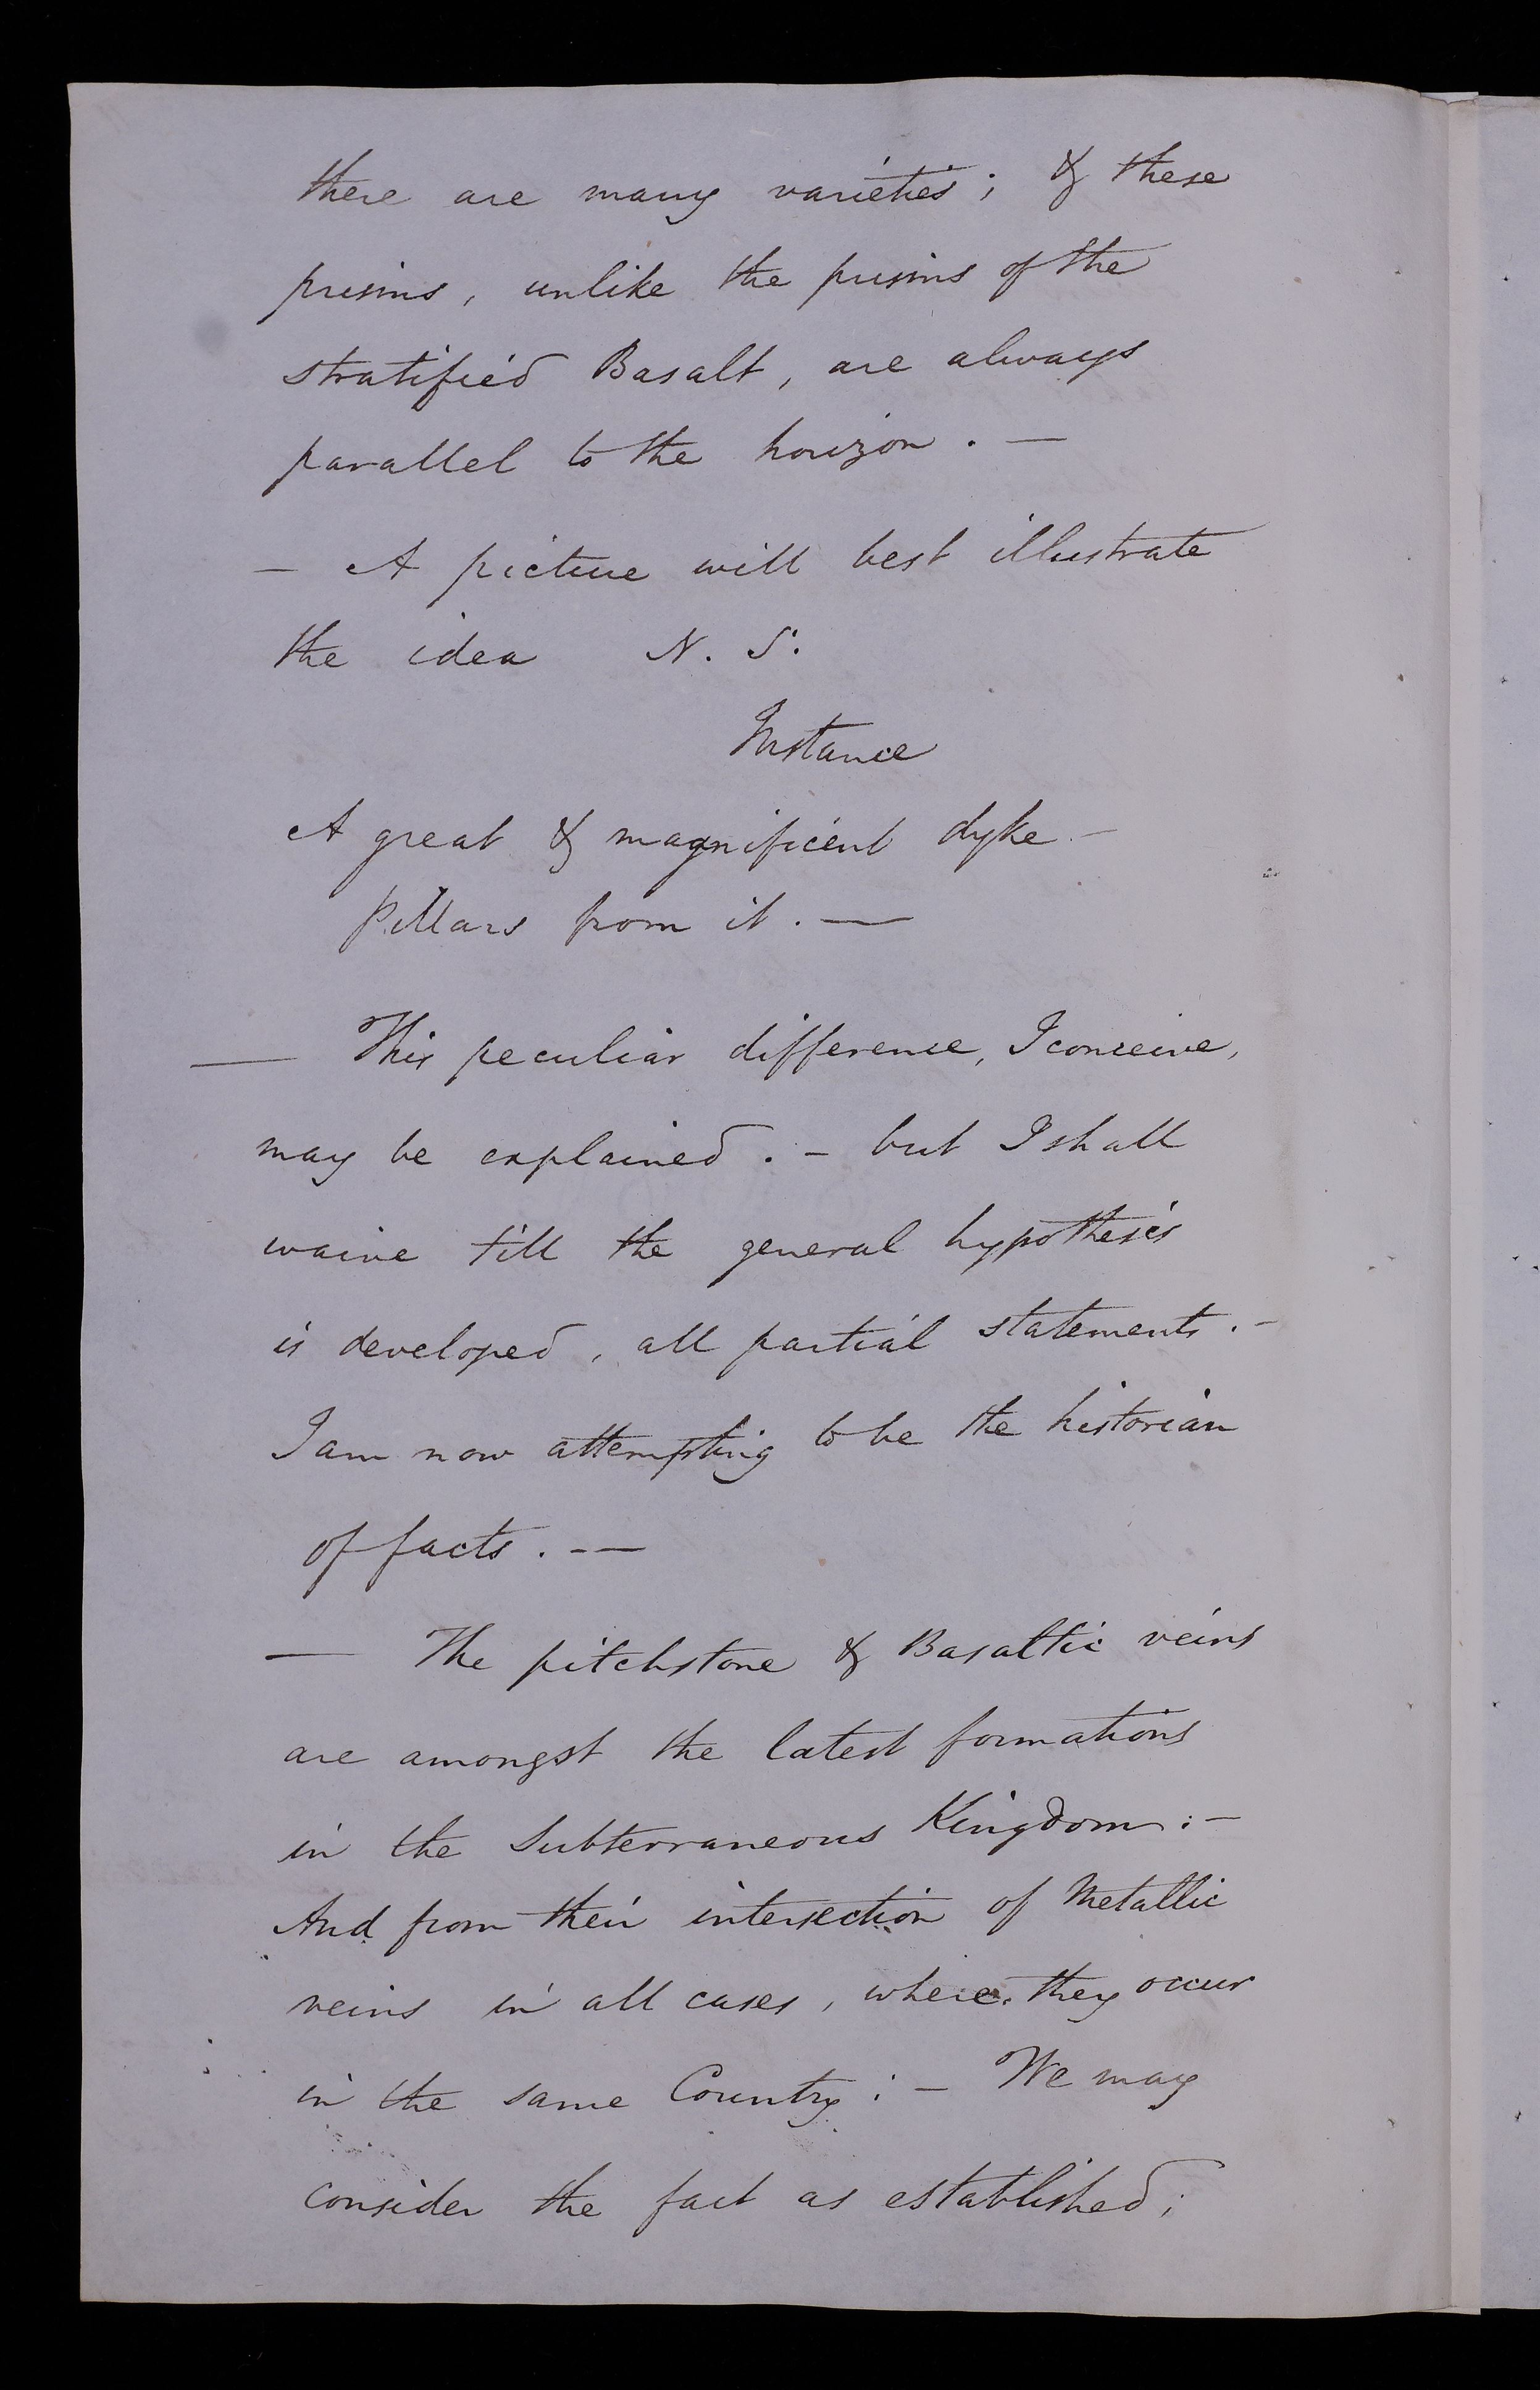 there are many varieties; & these
prisms, unlike the prisms of the
stratified Basalt, are always
parallel to the horizon. —
— A picture will best illustrate
the idea N. S.
Instance
A great & magnificent dyke —
Pillars from it. —
— This peculiar difference, I conceive,
may be explained. — but I shall
waive till the general hypothesis
is developed, all partial statements. —
I am now attempting to be the historian
of facts. — —
— The pitchstone & Basaltic veins
are amongst the latest formations
in the Subterraneous Kingdom: —
And from their intersection of Metallic
veins in all cases, where they occur
in the same Country: — We may
consider the fact as established;